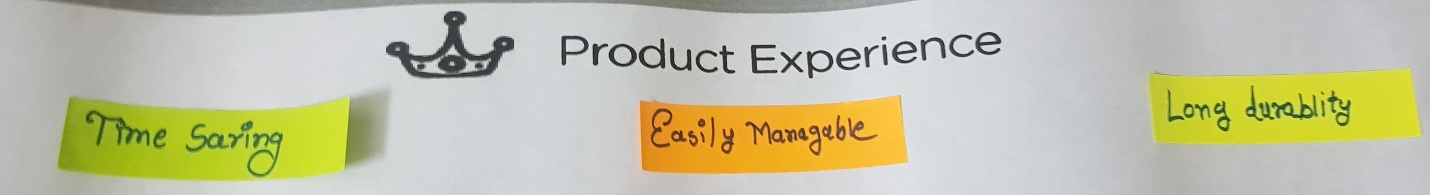 Product Experience
Time Saving
Easily Managable
Long durablity